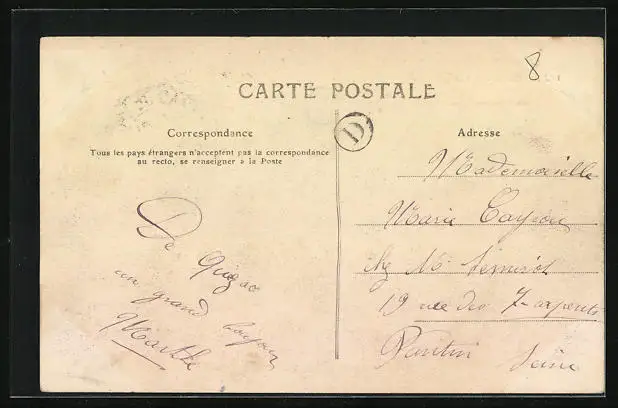 8
CARTE POSTALE
Correspondance
Tous les pays étrangers n'acceptent pas la correspondance
au recto, se renseigner à la Poste
De Quézac
un grand
Marthe
D
Adresse
Mademoiselle
Marie
chez M.
19 rue des 7-arpents
Pantin Seine